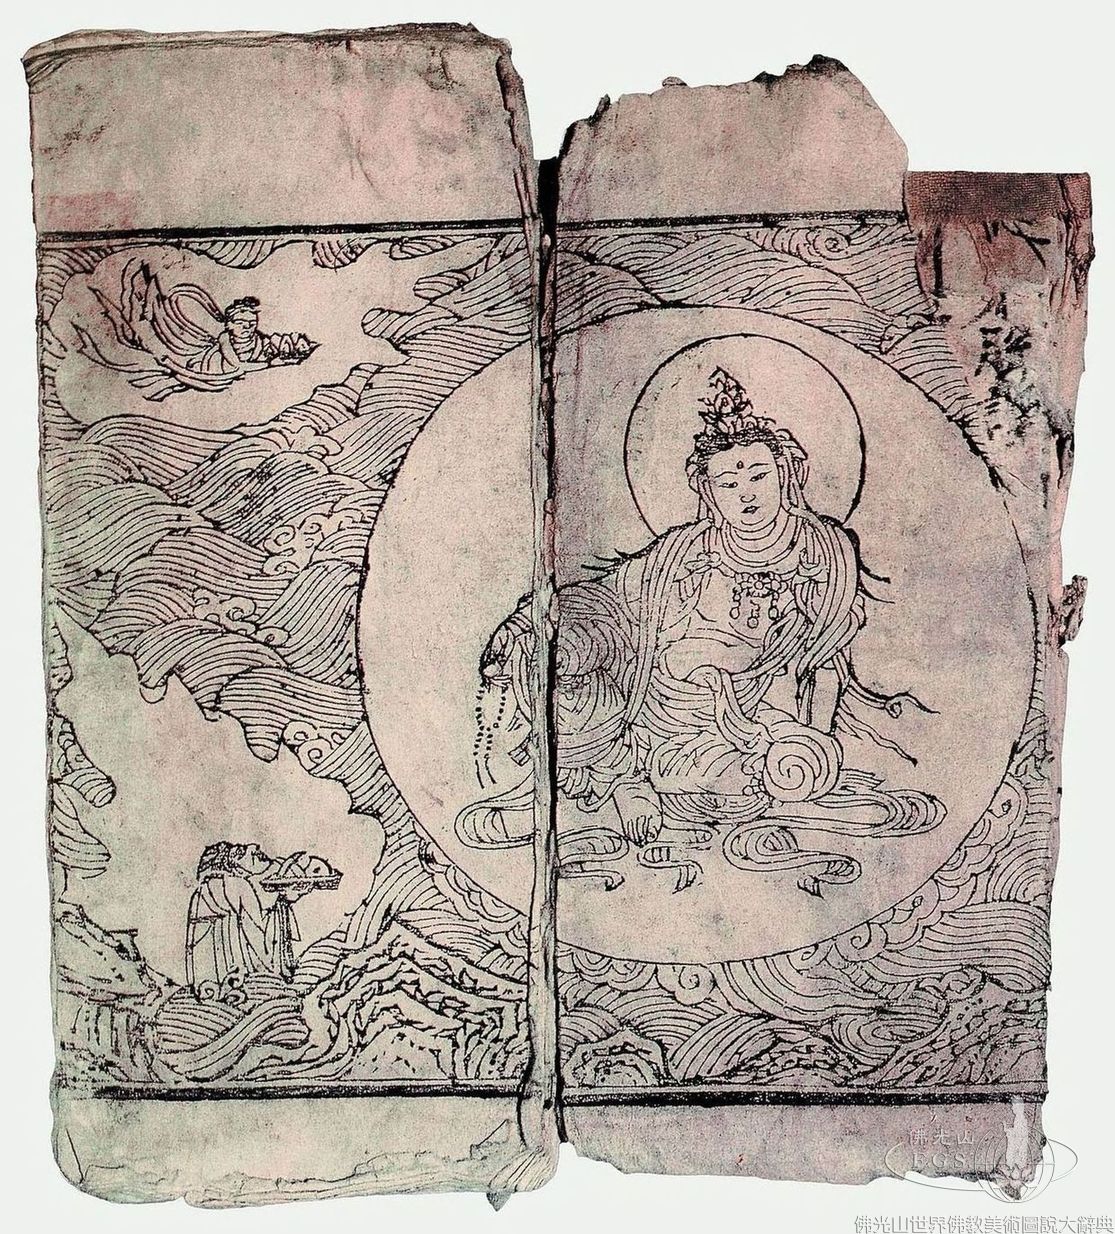 佛光山
FGS
佛光山世界佛教美術圖說大辭典